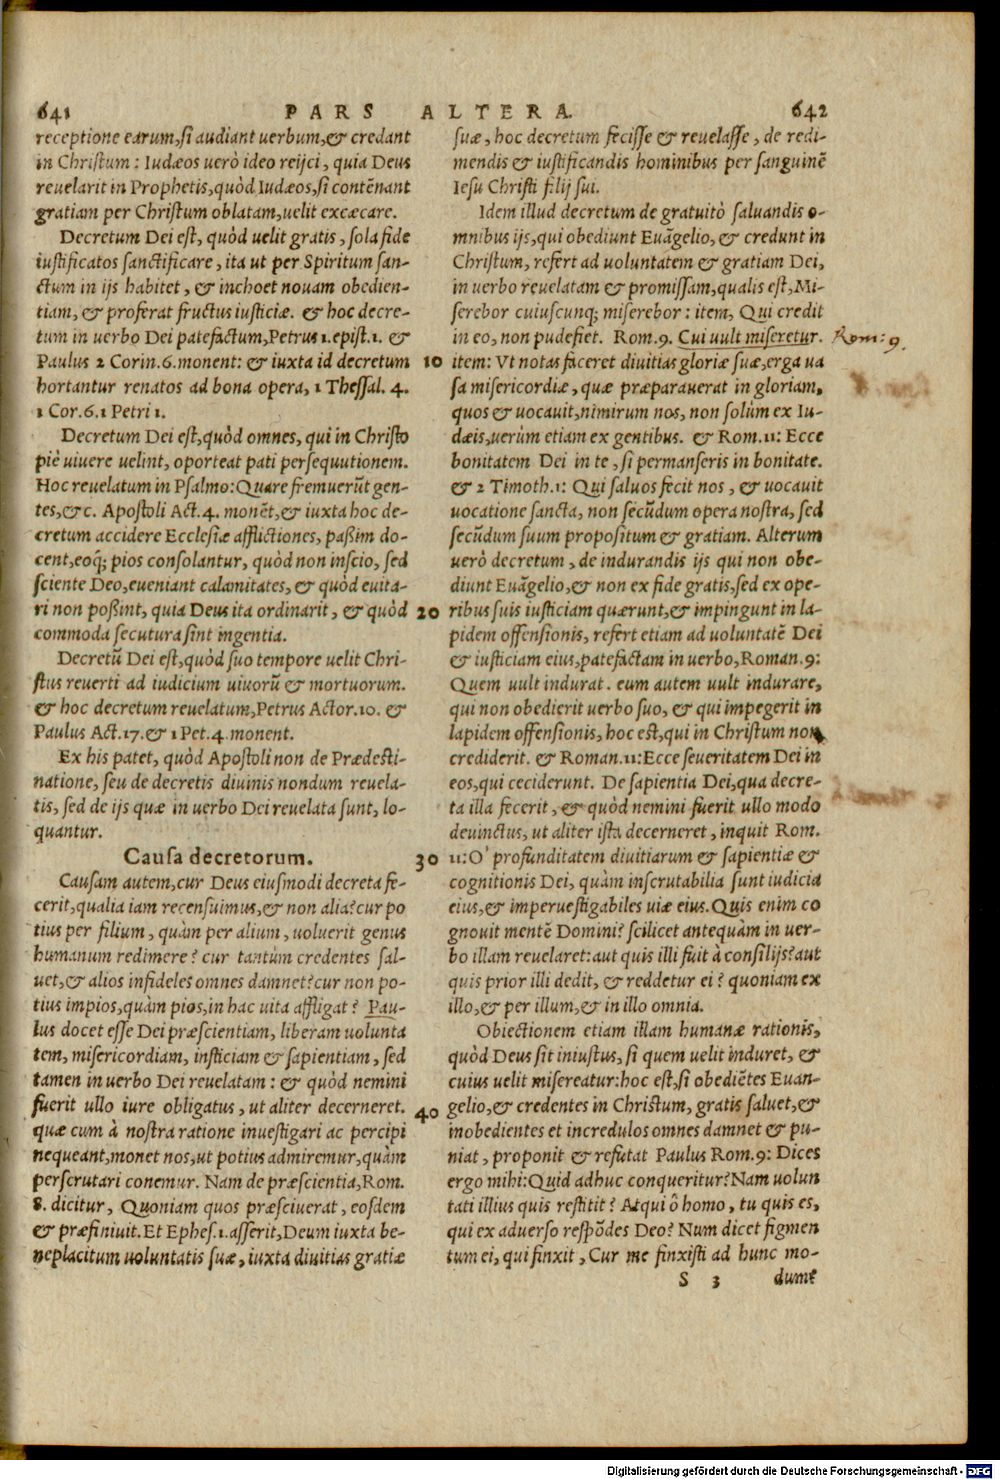 641 PARS ALTERA. 642
receptione earum, si audiant uerbum, & credant
in Christum: Iudæos uerò ideo reijci, quia Deus
reuelarit in Prophetis, quòd Iudæos, si contēnant
gratiam per Christum oblatam, uelit excæcare.
Decretum Dei est, quòd uelit gratis, sola fide
iustificatos sanctificare, ita ut per Spiritum san-
ctum in ijs habitet, & inchoet nouam obedien-
tiam, & proferat fructus iusticiæ. & hoc decre-
tum in uerbo Dei patefactum, Petrus 1. epist. 1. &
Paulus 2 Corin. 6. monent: & iuxta id decretum
hortantur renatos ad bona opera, 1 Thessal. 4.
1 Cor. 6. 1 Petri 1.
Decretum Dei est, quòd omnes, qui in Christo
piè uiuere uelint, oporteat pati persequutionem.
Hoc reuelatum in Psalmo: Quare fremuerūt gen-
tes, &c. Apostoli Act. 4. monēt, & iuxta hoc de-
cretum accidere Ecclesiæ afflictiones, paßim do-
cent, eoq; pios consolantur, quòd non inscio, sed
sciente Deo, eueniant calamitates, & quòd euita-
ri non poßint, quia Deus ita ordinarit, & quòd
commoda secutura sint ingentia.
Decretū Dei est, quòd suo tempore uelit Chri-
stus reuerti ad iudicium uiuorū & mortuorum.
& hoc decretum reuelatum, Petrus Actor. 10. &
Paulus Act. 17. & 1 Pet. 4. monent.
Ex his patet, quòd Apostoli non de Prædesti-
natione, seu de decretis diuinis nondum reuela-
tis, sed de ijs quæ in uerbo Dei reuelata sunt, lo-
quantur.
Causa decretorum.
Causam autem, cur Deus eiusmodi decreta fe-
cerit, qualia iam recensuimus, & non alia? cur po
tius per filium, quàm per alium, uoluerit genus
humanum redimere? cur tantùm credentes sal-
uet, & alios infideles omnes damnet? cur non po-
tius impios, quàm pios, in hac uita affligat? Pau-
lus docet esse Dei præscientiam, liberam uolunta
tem, misericordiam, insticiam & sapientiam, sed
tamen in uerbo Dei reuelatam: & quòd nemini
fuerit ullo iure obligatus, ut aliter decerneret.
quæ cum à nostra ratione inuestigari ac percipi
nequeant, monet nos, ut potius admiremur, quàm
perscrutari conemur. Nam de præscientia, Rom.
8. dicitur, Quoniam quos præsciuerat, eosdem
& præfiniuit. Et Ephes. 1. asserit, Deum iuxta be-
neplacitum uoluntatis suæ, iuxta diuitias gratiæ
10
20
30
40
suæ, hoc decretum fecisse & reuelasse, de redi-
mendis & iustificandis hominibus per sanguinē
Iesu Christi filij sui.
Idem illud decretum de gratuitò saluandis o-
mnibus ijs, qui obediunt Euāgelio, & credunt in
Christum, refert ad uoluntatem & gratiam Dei,
in uerbo reuelatam & promissam, qualis est, Mi-
serebor cuiuscunq; miserebor: item, Qui credit
in eo, non pudefiet. Rom. 9. Cui uult miseretur. Rom: 9.
item: Vt notas faceret diuitias gloriæ suæ, erga ua
sa misericordiæ, quæ præparauerat in gloriam,
quos & uocauit, nimirum nos, non solùm ex Iu-
dæis, uerùm etiam ex gentibus. & Rom. 11: Ecce
bonitatem Dei in te, si permanseris in bonitate.
& 2 Timoth. 1: Qui saluos fecit nos, & uocauit
uocatione sancta, non secūdum opera nostra, sed
secūdum suum propositum & gratiam. Alterum
uerò decretum, de indurandis ijs qui non obe-
diunt Euāgelio, & non ex fide gratis, sed ex ope-
ribus suis iusticiam quærunt, & impingunt in la-
pidem offensionis, refert etiam ad uoluntatē Dei
& iusticiam eius, patefactam in uerbo, Roman. 9:
Quem uult indurat. eum autem uult indurare,
qui non obedierit uerbo suo, & qui impegerit in
lapidem offensionis, hoc est, qui in Christum non
crediderit. & Roman. 11: Ecce seueritatem Dei in
eos, qui ceciderunt. De sapientia Dei, qua decre-
ta illa fecerit, & quòd nemini fuerit ullo modo
deuinctus, ut aliter ista decerneret, inquit Rom.
11: O' profunditatem diuitiarum & sapientiæ &
cognitionis Dei, quàm inscrutabilia sunt iudicia
eius, & imperuestigabiles uiæ eius. Quis enim co
gnouit mentē Domini? scilicet antequàm in uer-
bo illam reuelaret: aut quis illi fuit à consilijs? aut
quis prior illi dedit, & reddetur ei? quoniam ex
illo, & per illum, & in illo omnia.
Obiectionem etiam illam humanæ rationis,
quòd Deus sit iniustus, si quem uelit induret, &
cuius uelit misereatur: hoc est, si obediētes Euan-
gelio, & credentes in Christum, gratis saluet, &
inobedientes et incredulos omnes damnet & pu-
niat, proponit & refutat Paulus Rom. 9: Dices
ergo mihi: Quid adhuc conqueritur? Nam uolun
tati illius quis restitit? Atqui ô homo, tu quis es,
qui ex aduerso respōdes Deo? Num dicet figmen
tum ei, qui finxit, Cur me finxisti ad hunc mo-
S 3 dum?
Digitalisierung gefördert durch die Deutsche Forschungsgemeinschaft - DFG